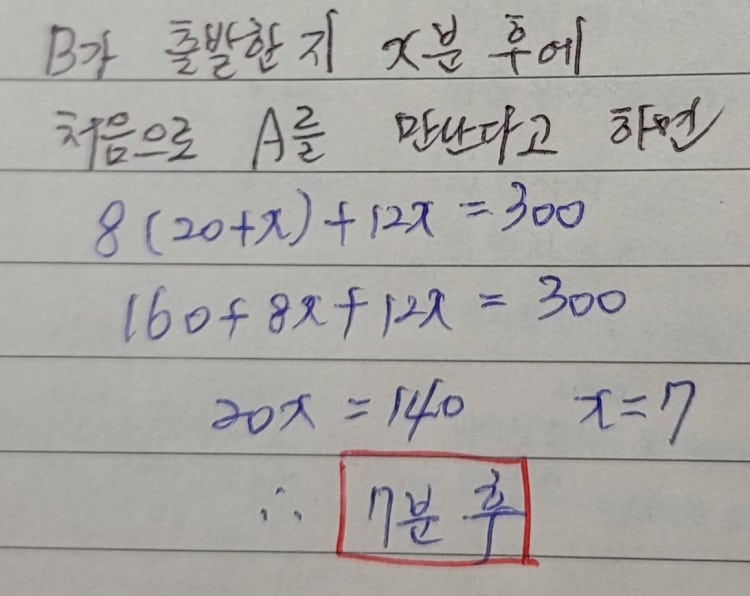 B가 출발한 지 x분 후에
처음으로 A를 만난다고 하면
8(20+x)+12x=300
160+8x+12x=300
20x=140 x=7
∴ 7분 후